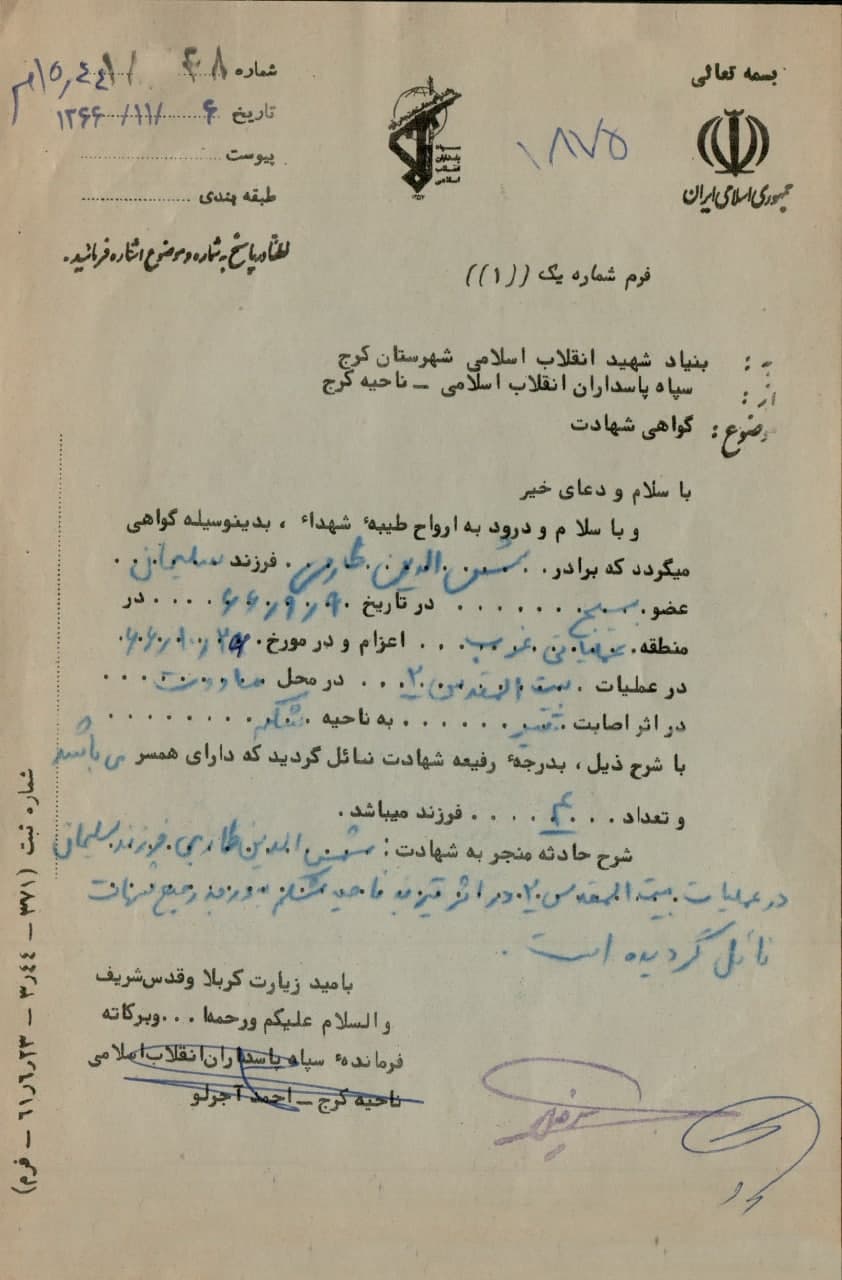 بسمه تعالی
جمهوری اسلامی ایران
۱۸۷۵
شماره
تاریخ ۶ /۱۱/ ۱۳۶۶
پیوست
طبقه بندی
لطفا در پاسخ به شماره و موضوع اشاره فرمائید.
فرم شماره یک ((۱))
بنیاد شهید انقلاب اسلامی شهرستان کرج
از : سپاه پاسداران انقلاب اسلامی ــ ناحیه کرج
موضوع : گواهی شهادت
با سلام و دعای خیر
و با سلام و درود به ارواح طیبهٔ شهداء ، بدینوسیله گواهی
میگردد که برادر شمس الدین طارمی فرزند سلیمانی
عضو بسیج در تاریخ ۶۶٫۹٫۹ در
منطقه عملیاتی غرب اعزام و در مورخ ۶۶٫۱۰٫۲۵
در عملیات بیت المقدس ۲ در محل
در اثر اصابت تیر به ناحیه شکم
با شرح ذیل ، بدرجهٔ رفیعه شهادت نائل گردید که دارای همسر می باشد
و تعداد فرزند میباشد .
شرح حادثه منجر به شهادت : شمس الدین طارمی فرزند سلیمانی
در عملیات بیت المقدس ۲ در اثر تیر به ناحیه شکم به درجه رفیع شهادت
نائل گردیده است .
بامید زیارت کربلا وقدس شریف
والسلام علیکم ورحمها ... وبرکاته
فرماندهٔ سپاه پاسداران انقلاب اسلامی
ناحیه کرج ــ احمد آجرلو
شماره ثبت (۳۷۱ ــ ۳٫۴۴ ــ ۶۱٫۶٫۲۳ ــ فرم)